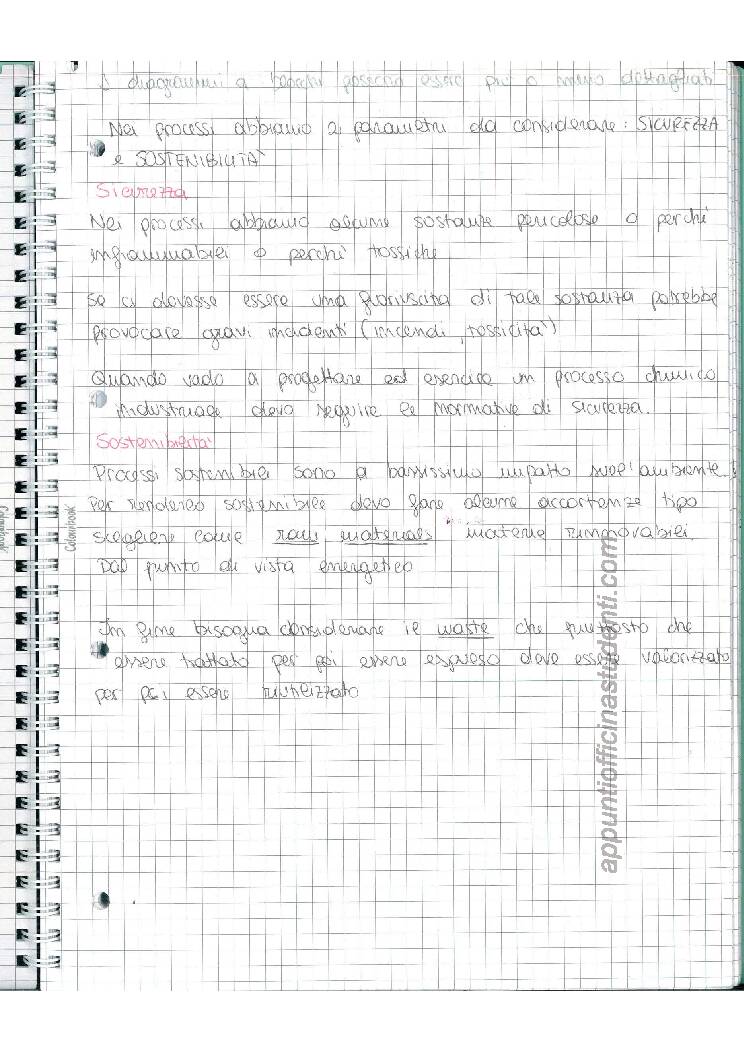 I diagrammi a blocchi possono essere più o meno dettagliati
Nei processi abbiamo 2 parametri da considerare: SICUREZZA
e SOSTENIBILITA'
Sicurezza
Nei processi abbiamo alcune sostanze pericolose o perchi
infiammabili o perchi' tossiche
Se ci dovesse essere una fuoriuscita di tale sostanza potrebbe
provocare gravi incidenti (incendi, tossicita')
Quando vado a progettare ed esercire un processo chimico
industriale devo seguire le normative di sicurezza.
Sostenibilita'
Processi sostenibili sono a bassissimo impatto sull'ambiente
Per renderlo sostenibile devo fare alcune accortenze tipo
scegliere come raw materials materie rinnovabili.
Dal punto di vista energetico
In fine bisogna considerare il waste che piuttosto che
essere trattato per poi essere espulso deve essere valorizzato
per poi essere riutilizzato
Colourbook
appuntiofficinastudenti.com